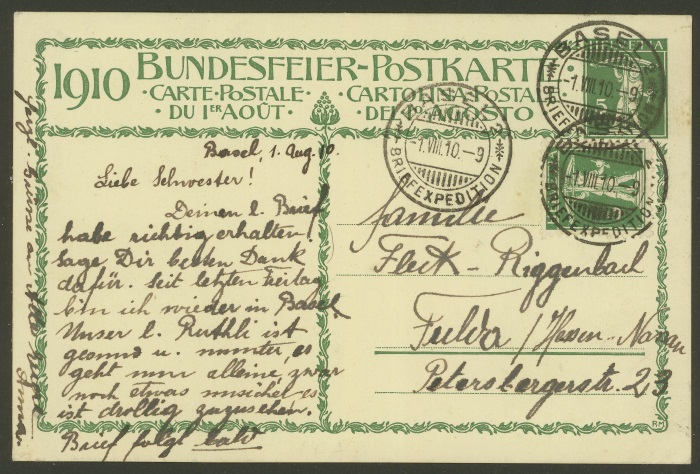 1910 BUNDESFEIER-POSTKARTE
·CARTE·POSTALE· CARTOLINA·POSTALE
DU 1ER AOÛT· DEL 1º AGOSTO
BASEL 2
-1.VIII.10.-9
BRIEFEXPEDITION
BASEL 2
-1.VIII.10.-9
BRIEFEXPEDITION
BASEL
-1.VIII.10.-9
BRIEFEXPEDITION
5
Basel, 1. Aug. 10.
Liebe Schwester!
Deinen l. Brief
habe richtig erhalten!
Sage Dir besten Dank
dafür. Seit letzten Freitag
bin ich wieder in Basel
Unser l. Ruthli ist
gesund u. munter, es
geht nun alleine, zwar
noch etwas unsicher es
ist drollig zuzusehen.
Brief folgt bald
Anna
Familie
Fleck-Riggenbach
Fulda / Hessen-Nassau
Petersbergerstr. 23
RM